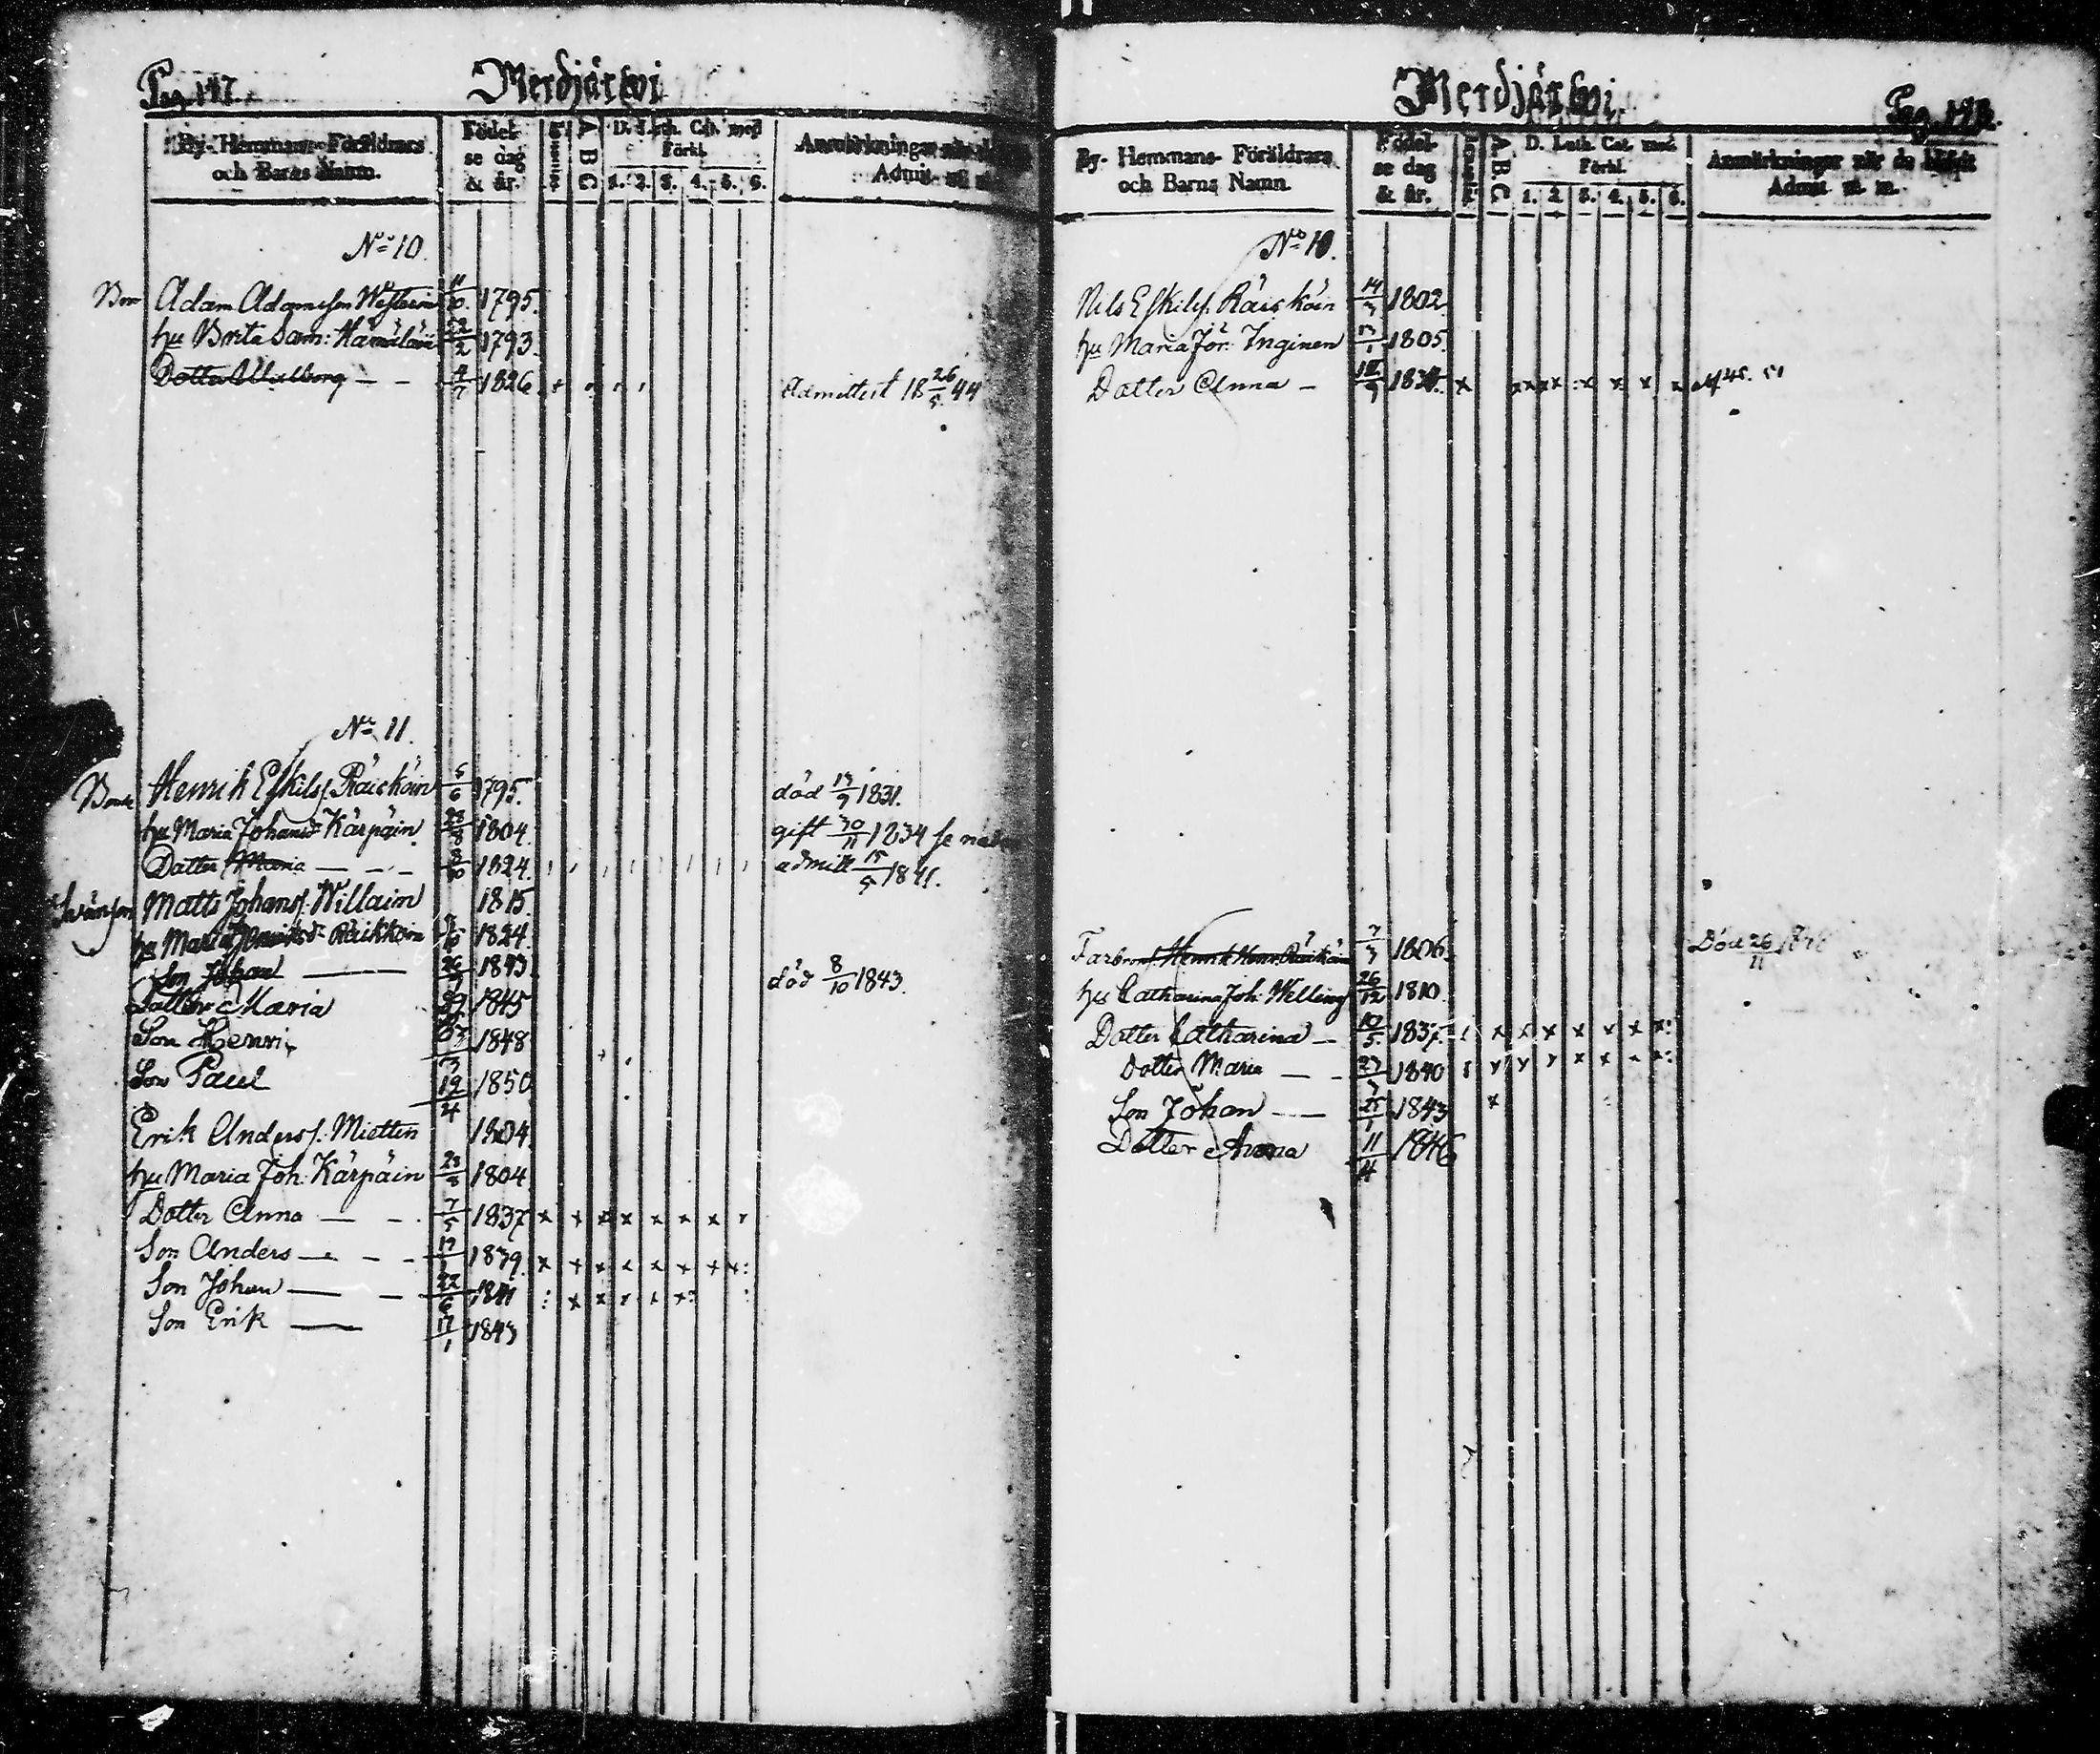 Pag. 147.
Merdjärwi
By- Hemmans- Föräldrars
och Barns Namn.
Födel-
se dag
& år.
A B C
D. Luth. Cat. med
Förkl.
1. 2. 3. 4. 5. 6.
Anmärkningar när
Admit.
No 10.
Adam Adamsson 11/10. 1795.
hu Brita Sam: 22/2 1793.
Dotter Walborg — — 4/7 1826. Admitterd 18 26/5 44
No 11.
Bonde Henrik Eskilsf. Räisköin 5/6 1795. död 13/9 1831.
hu Maria Johansdr Kärpäin 28/8 1804. gift 30/11 1834 se
Datter Maria — — 8/10 1824. admitt 15/5 1841.
Matts Johansf. Willain 1815.
hu Maria Henriksdr 8/10 1824.
Son Johan — 26/ 1843 död 8/10 1843.
Datter Maria 29 1845
Son Henri 1848
Son Paul 19/4 1850
Erik Andersf. Miettin 1804.
hu Maria Joh. Kärpäin 28/8 1804
Dotter Anna — — 7/5 1837 x x x x x x x
Son Anders — — 19/1 1839. x x x x x x x x
Son Johan — — 22/6 1841 x x x x x
Son Erik — 17/1 1843
Merdjärwi
Pag. 148.
By- Hemmans- Föräldrars
och Barns Namn.
Födel-
se dag
& år.
A.B.C
D. Luth. Cat. med
Förkl.
1. 2. 3. 4. 5. 6.
Anmärkningar när de blifvit
Admit. m. m.
No 10.
Nils Eskilsf. Räisköin 14/3 1802.
hu Maria Jör: Inginen 13/1 1805.
Dotter Anna — x x x x x x x x x
Farbror Henrik Henr. Räisköin 7/3 1806. Död 26/11
hu Catharina Joh. Welling 26/12 1810.
Datter Catharina — 10/5 1837. x x x x x x x
Dotter Maria — 1840
Son Johan — 25/1 1843 x
Dotter Anna 11/4 1846